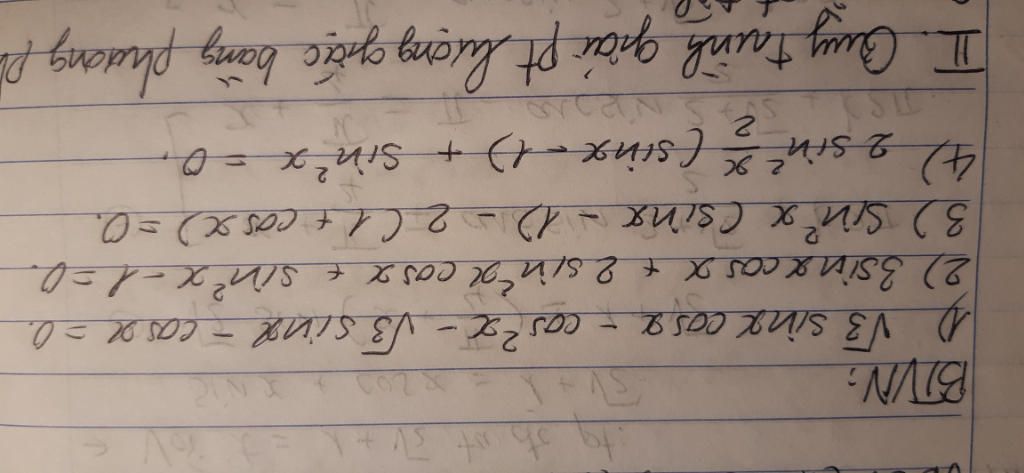 BTVN:
1) √3 sinx cosx - cos²x - √3 sinx - cosx = 0.
2) 3sinx cosx + 2 sin²x cosx + sin²x - 1 = 0.
3) sin²x (sinx - 1) - 2 (1 + cosx) = 0.
4) 2 sin² x/2 (sinx - 1) + sin²x = 0.
II. Quy trình giải pt lượng giác bằng phương